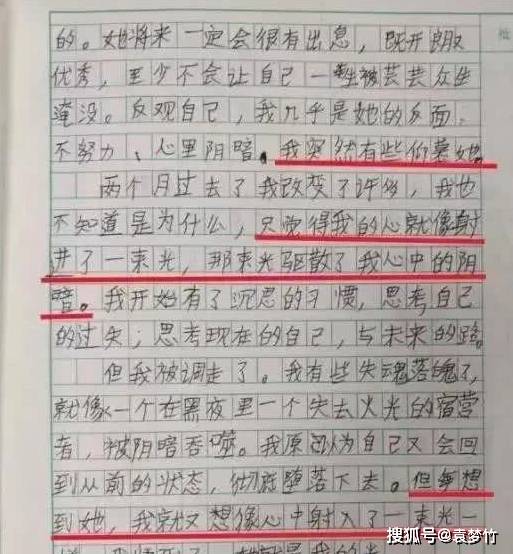 的。她将来一定会很有出息，既开朗又
优秀，至少不会让自己一生被芸芸众生
淹没。反观自己，我几乎是她的反面，
不努力、心里阴暗。我突然有些仰慕她。
两个月过去了我改变了许多，我也
不知道是为什么，只觉得我的心就像射
进了一束光，那束光驱散了我心中的阴
暗。我开始有了沉思的习惯，思考自己
的过失；思考现在的自己，与未来的路。
但我被调走了。我有些失魂落魄了，
就像一个在黑夜里一个失去火光的宿营
者，被阴暗吞噬。我原以为自己又会回
到从前的状态，彻底堕落下去。但每想
到她，我就又想像心中射入了一束光一
就是我
搜狐号@袁梦竹